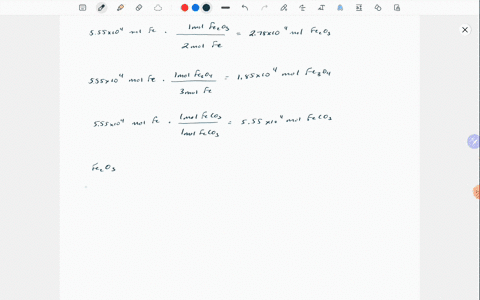 5.55x10⁴ mol Fe · 1mol Fe₂O₃ / 2mol Fe = 2.78x10⁴ mol Fe₂O₃
5.55x10⁴ mol Fe · 1mol Fe₂O₄ / 3mol Fe = 1.85x10⁴ mol Fe₃O₄
5.55x10⁴ mol Fe · 1mol FeCO₃ / 1mol FeCO₃ = 5.55x10⁴ mol FeCO₃
Fe₂O₃